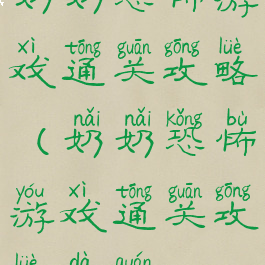 奶奶恐怖游
xì tōng guān gōng lüè
戏通关攻略
nǎi nǎi kǒng bù
(奶奶恐怖
yóu xì tōng guān gōng
游戏通关攻
lüè dà quán